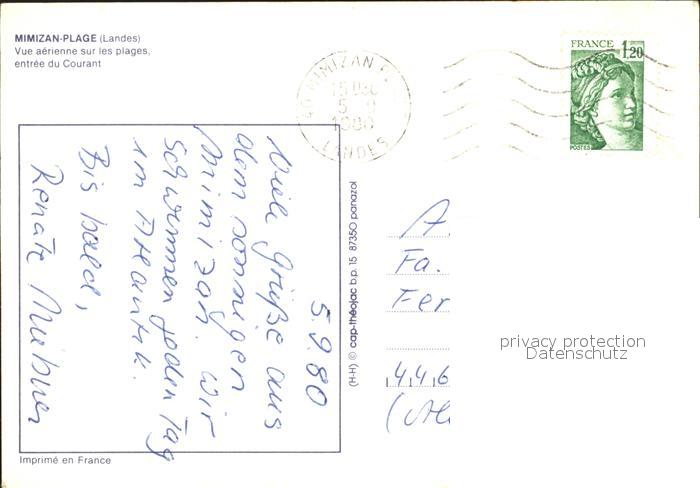 MIMIZAN-PLAGE (Landes)
Vue aérienne sur les plages,
entrée du Courant
FRANCE 1,20
POSTES
40 MIMIZAN
15H
5 9
1980
LANDES
5.9.80
Viele Grüße aus
dem sonnigen
Mimizan. Wir
schwimmen jeden Tag
im Atlantik.
Bis bald,
Renate
(H-H) © cap-théojac b.p. 15 87350 panazol
A.
Fa.
Fer
446
privacy protection
Datenschutz
Imprimé en France